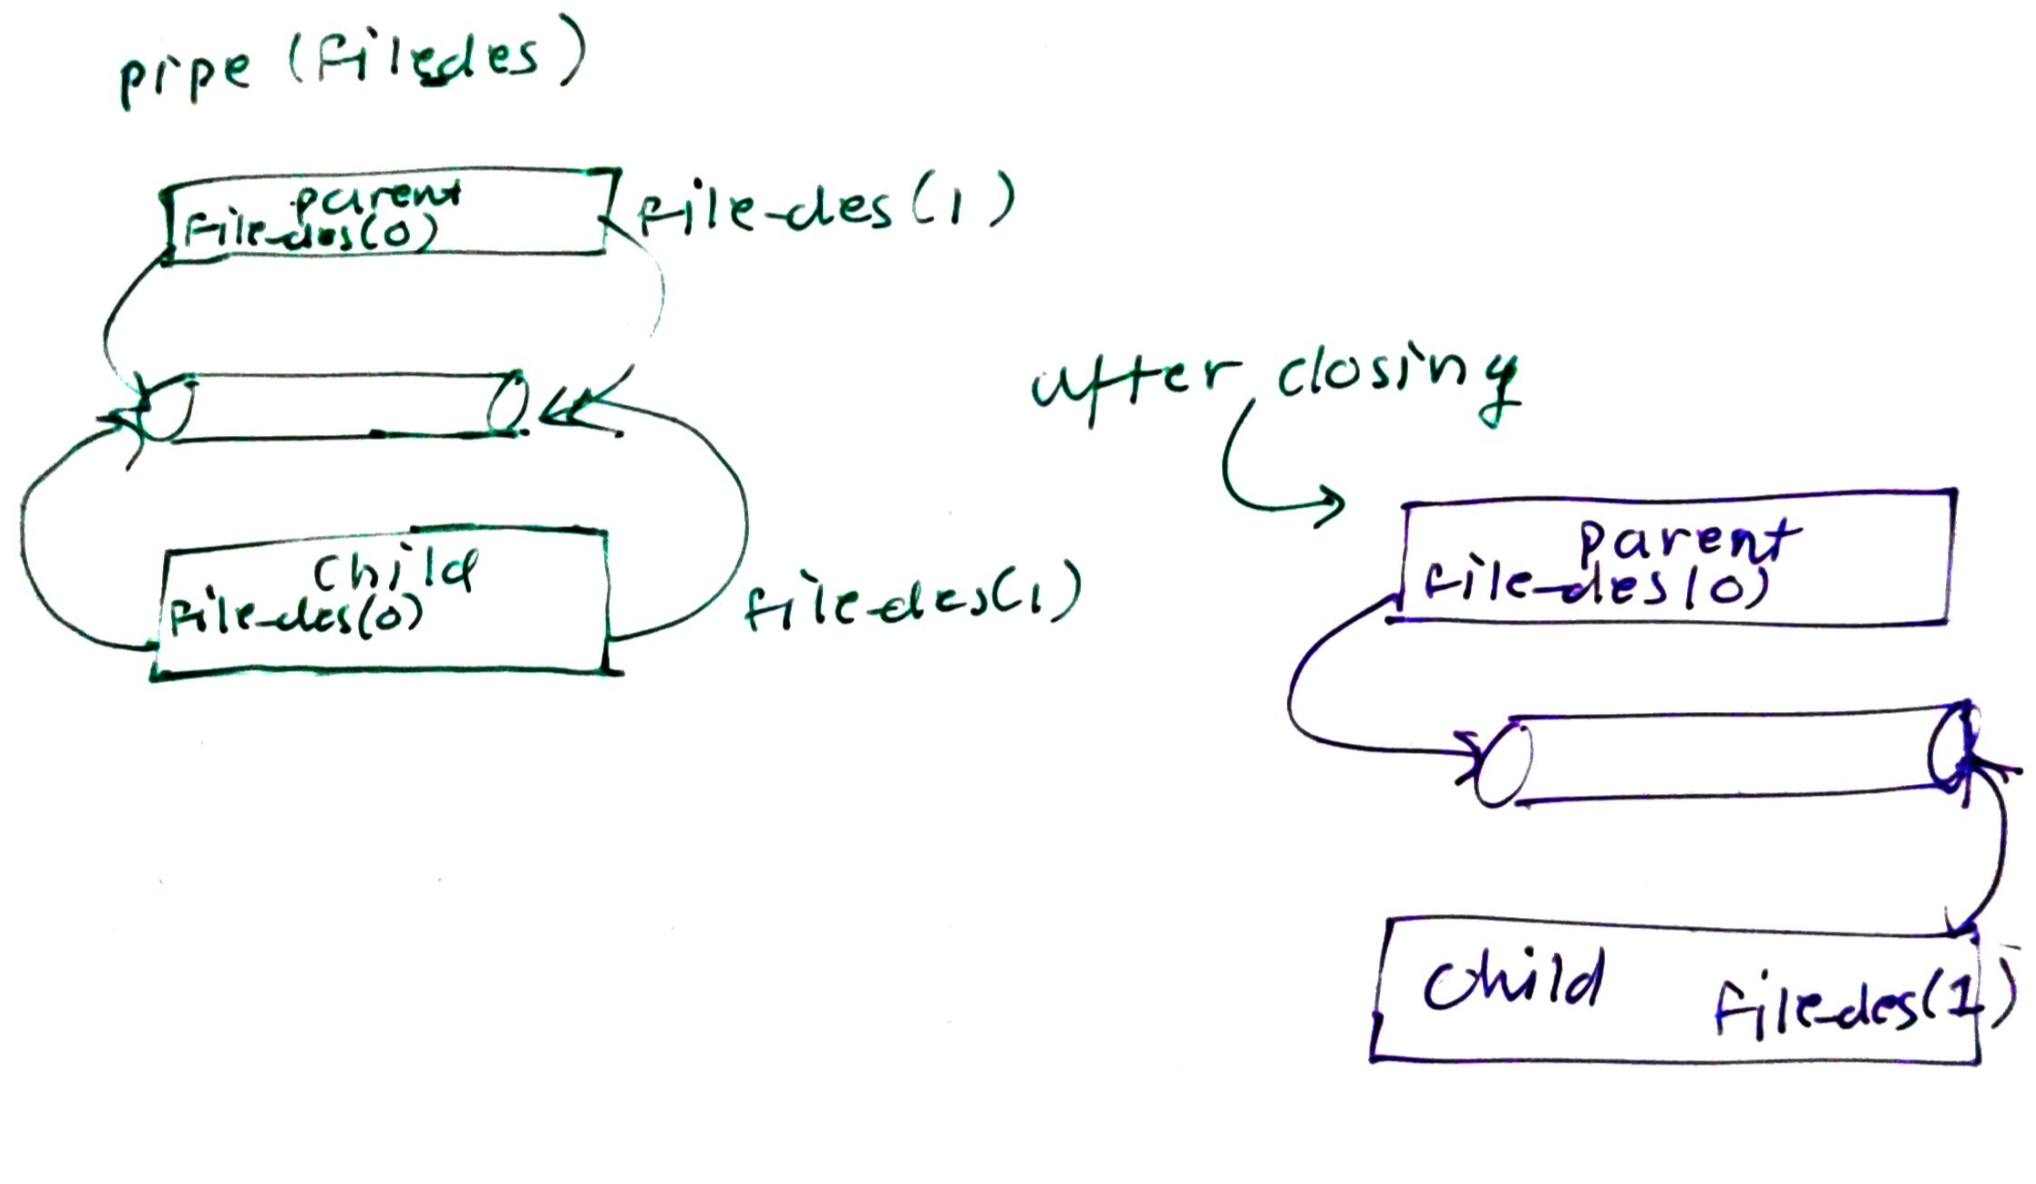 pipe (filedes)
parent
file-des(0)
file-des(1)
child
file-des(0)
file-des(1)
after closing
parent
file-des(0)
child
file-des(1)